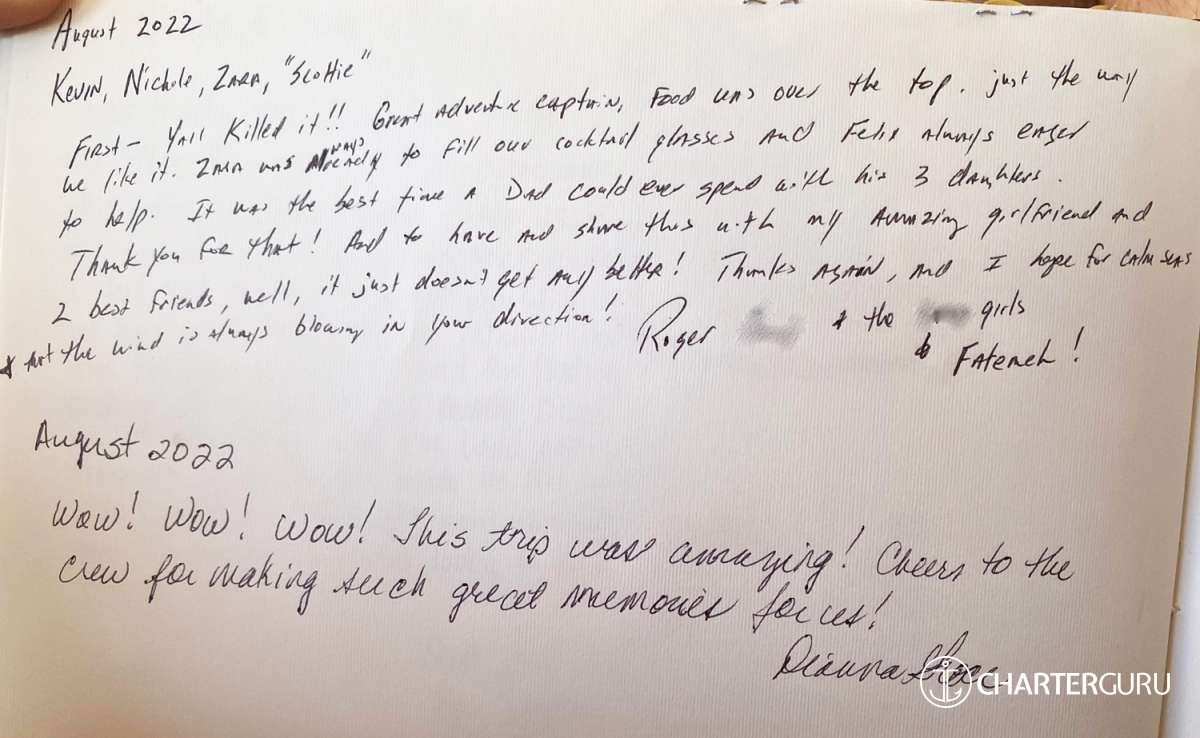 August 2022
Kevin, Nichole, Zara, "Scottie"
First - Yall Killed it!! Great adventure captain, Food was over the top. just the way
we like it. Zara was always ready to fill our cocktail glasses and Felix always eager
to help. It was the best time a Dad could ever spend with his 3 daughters.
Thank you for that! And to have and share this with my amazing girlfriend and
2 best friends, well, it just doesn't get any better! Thanks again, and I hope for calm seas
& that the wind is always blowing in your direction!
Roger & the girls
& Fatemeh!
August 2022
Wow! Wow! Wow! This trip was amazing! Cheers to the
crew for making such great memories for us!
Dianna
CHARTERGURU